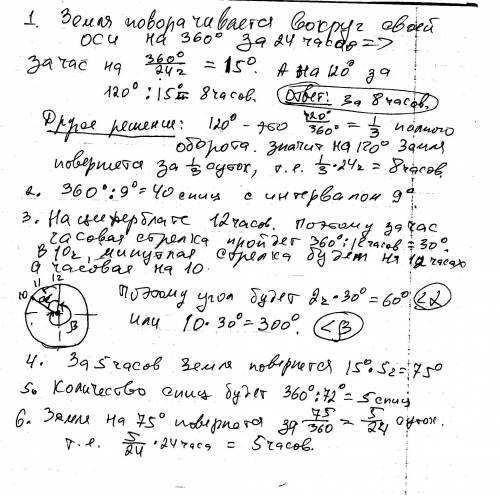 1. Земля поворачивается вокруг своей
оси на 360° за 24 часов =>
за час на 360°/24ч = 15°. А на 120° за
120° : 15° = 8 часов. Ответ: за 8 часов.
Другое решение: 120° - 120°/360° = 1/3 полного
оборота. значит на 120° Земля
повернется за 1/3 суток, т.е. 1/3 · 24ч = 8 часов.
2. 360° : 9° = 40 спиц с интервалом 9°.
3. На циферблате 12 часов. Поэтому за час
часовая стрелка пройдет 360° : 12 часов = 30°.
В 10ч, минутная стрелка будет на 12 часах
а часовая на 10.
10 11 12
α
β
Поэтому угол будет 2ч · 30° = 60° <α
или 10 · 30° = 300°. <β
4. За 5 часов Земля повернется 15° · 5ч = 75°
5. Количество спиц будет 360° : 72° = 5 спиц
6. Земля на 75° повернется за 75/360 = 5/24 суток.
т.е. 5/24 · 24 часа = 5 часов.